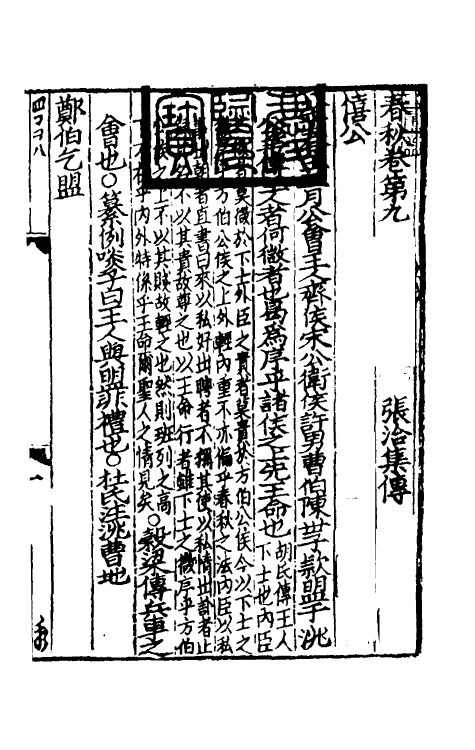 春秋卷第九
張洽集傳
僖公
月公會王人齊侯宋公衛侯許男曹伯陳世子款盟于洮
人者何微者也曷為序乎諸侯之上先王命也
胡氏傳王人
下士也內臣
莫微於下士外臣之貴者莫貴於方伯公侯今以下士之
方伯公侯之上外輕內重不亦偏乎春秋之法內臣以私
者直書曰來以私好出聘者不稱其使以私情出訃者止
不以其貴故尊之也以王命行者雖下士之微序乎方伯
之上不以其賤故輕之也然則班列之高
內外特係乎王命爾聖人之情見矣
○穀梁傳兵車之
會也○纂例啖子曰王人與盟非禮也○杜氏注洮曹地
鄭伯乞盟